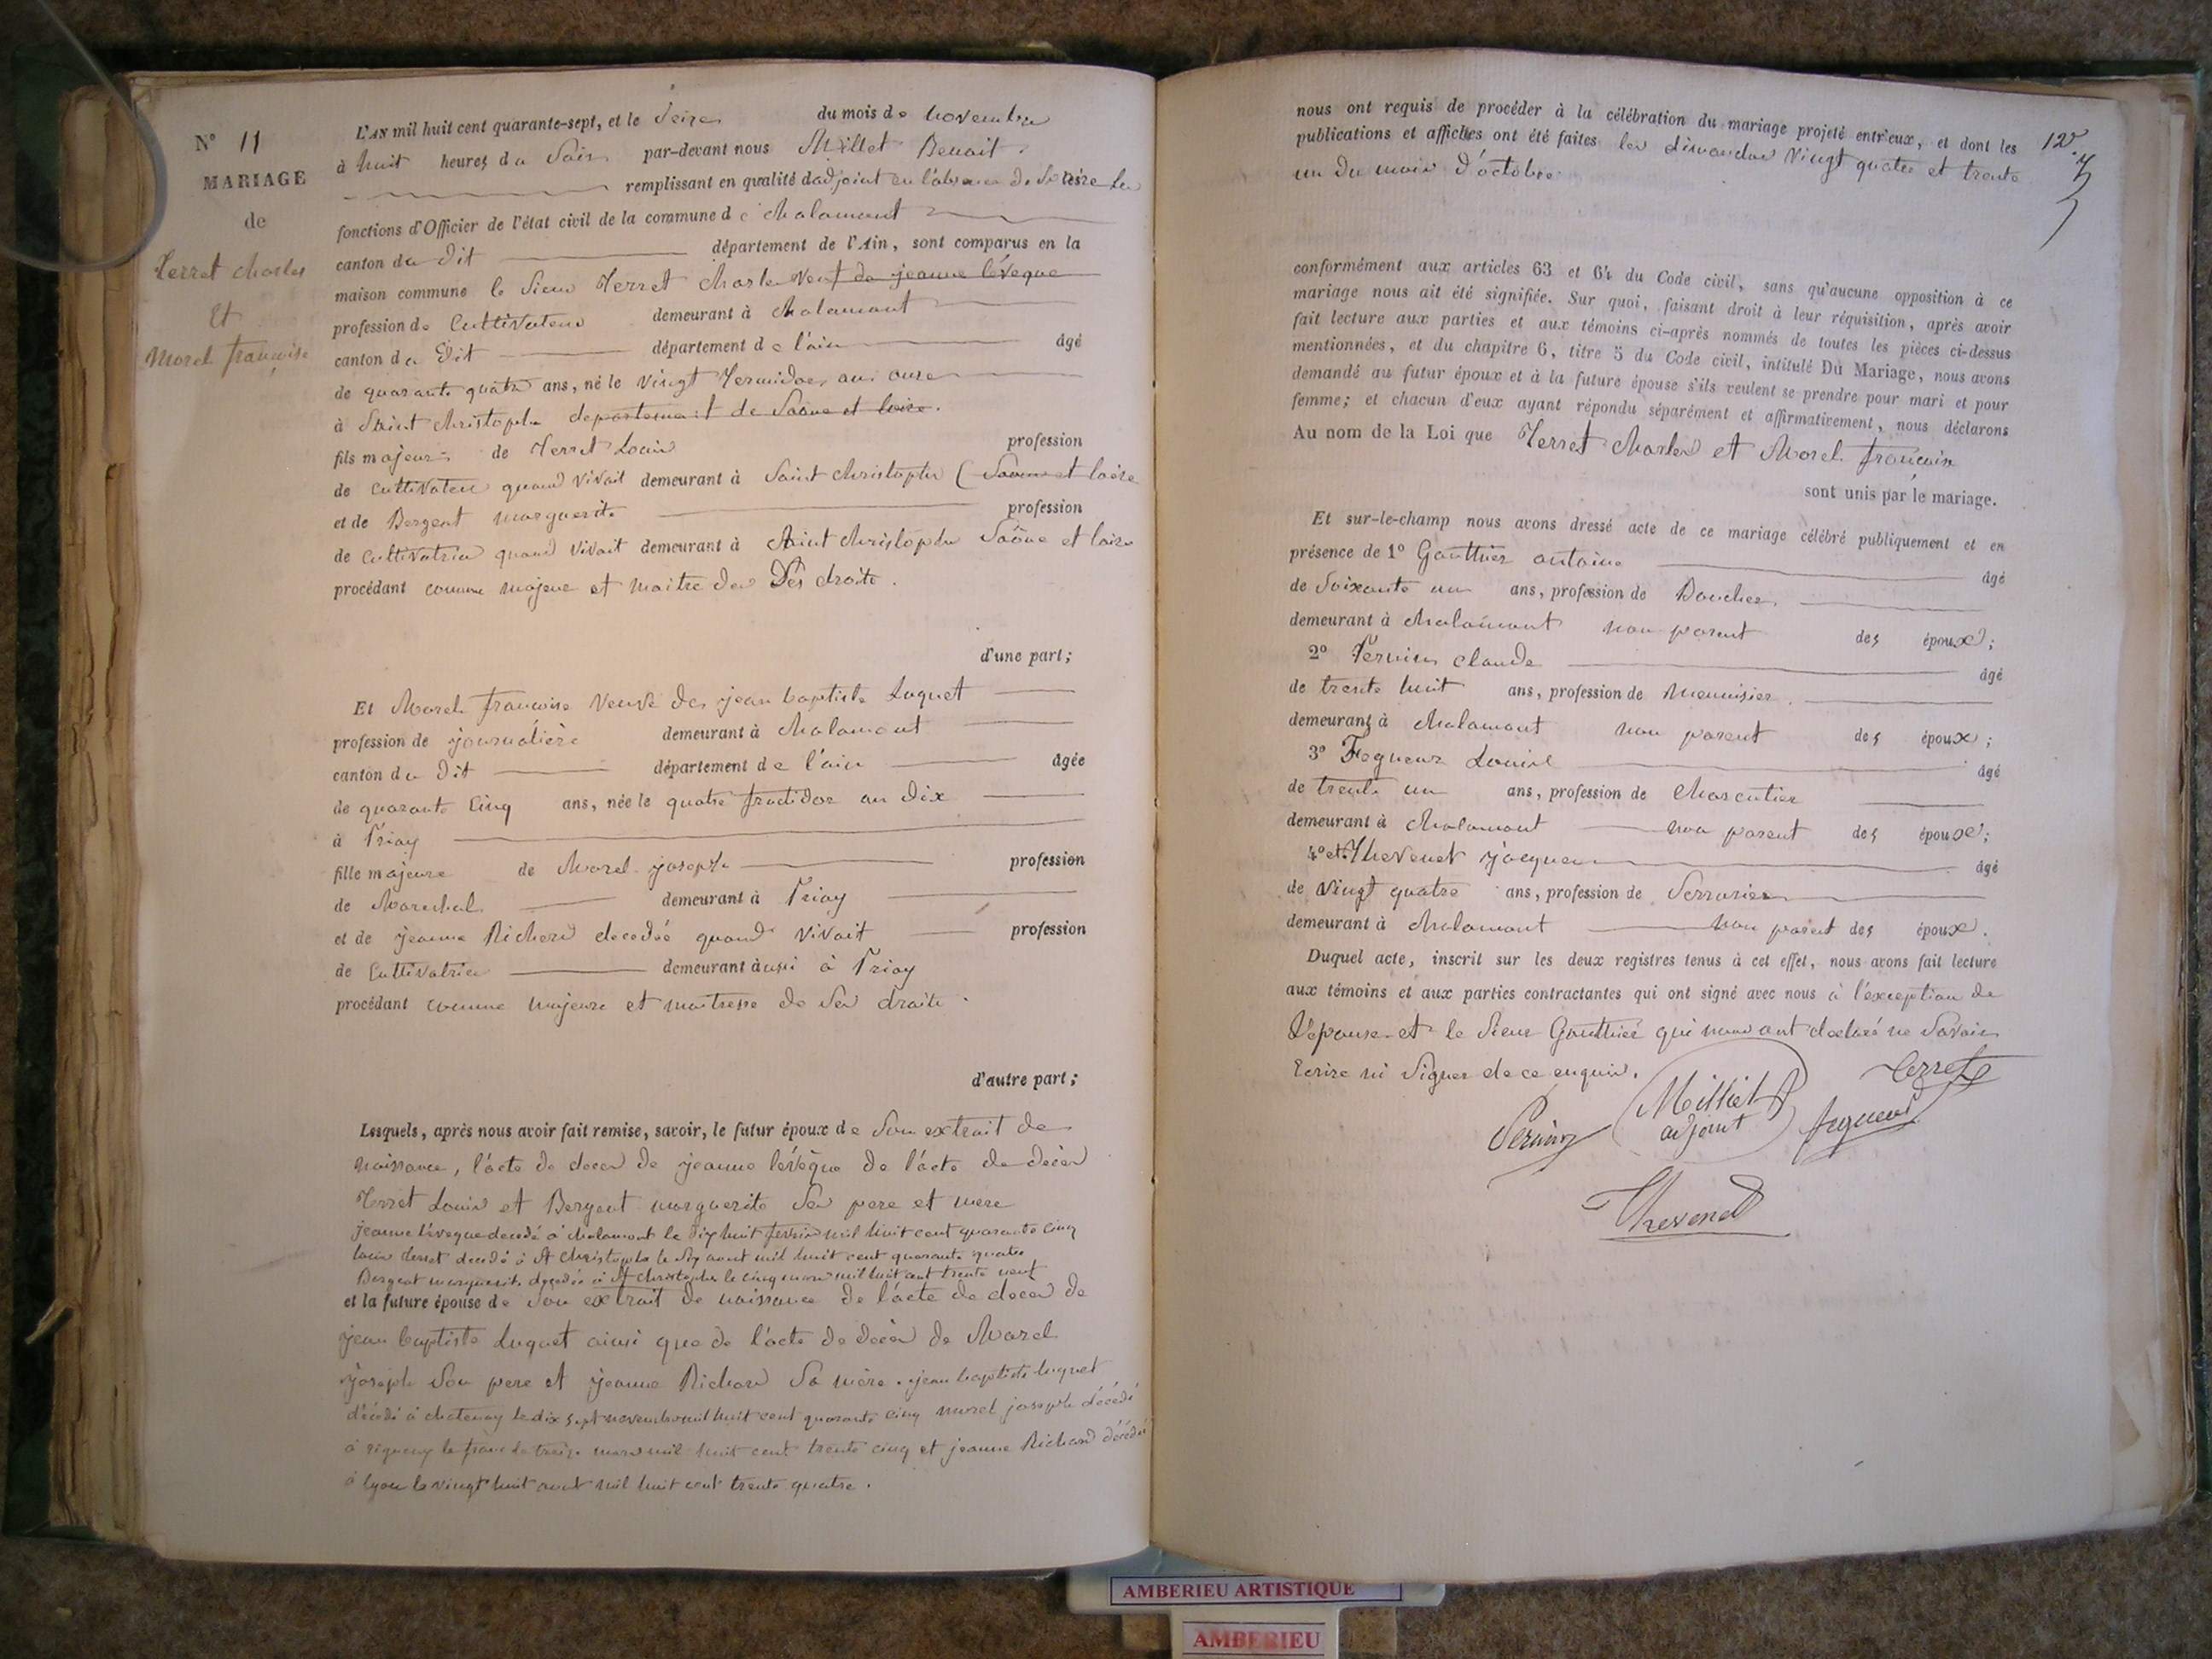 N° 11
MARIAGE
de
Terret charles
Et
Morel françoise
L'AN mil huit cent quarante-sept, et le Seize du mois de novembre
à huit heures du Soir par-devant nous Milliet Benoit.
remplissant en qualité d'adjoint en l'absence de Mr le Maire les
fonctions d'Officier de l'état civil de la commune de chalamont
canton du dit département de l'Ain, sont comparus en la
maison commune le Sieur Terret charles veuf de jeanne lévèque
profession de Cultivateur demeurant à chalamont
canton du Dit département de l'ain âgé
de quarante quatre ans, né le vingt Termidor an onze
à Saint christophe departement de Saône et loire.
fils majeur de Terret Louis profession
de cultivateur quand vivait demeurant à Saint christophe (Saone et loire
et de Bergent marguerite profession
de cultivatrice quand vivait demeurant à Saint christophe Saône et loire
procédant comme majeur et maitre de Ses droits.
d'une part;
Et Morel françoise veuve de jean baptiste Luquet
profession de journalière demeurant à chalamont
canton du Dit département de l'ain âgée
de quarante cinq ans, née le quatre fructidor an dix
à Priay
fille majeure de Morel joseph profession
de Marechal demeurant à Priay
et de jeanne Richard decedée quand vivait profession
de Cultivatrice demeurant aussi à Priay
procédant comme majeure et maitresse de Ses droits.
d'autre part;
Lesquels, après nous avoir fait remise, savoir, le futur époux de Son extrait de
naissance, l'acte de deces de jeanne lévèque de l'acte de décès
Terret Louis et Bergent marguerite Ses pere et mere
jeanne léveque decedé à chalamont le dix huit fevrier mil huit cent quarante cinq
louis terret decedé à St christophe le Six aout mil huit cent quarante quatre
Bergent marguerite decedée à St christophe le cinq mars mil huit cent trente neuf
et la future épouse de Son extrait de naissance de l'acte de deces de
jean baptiste Luquet ainsi que de l'acte de décès de Morel
joseph Son pere et jeanne Richard Sa mère. jean baptiste luquet
décédé à chatenay le dix sept novembre mil huit cent quarante cinq morel joseph décédé
à rigneux le franc le treize mars mil huit cent trente cinq et jeanne Richard décédée
à lyon le vingt huit aout mil huit cent trente quatre.
nous ont requis de procéder à la célébration du mariage projeté entr'eux, et dont les
publications et affiches ont été faites les dimanches vingt quatre et trente
un du mois d'octobre
conformément aux articles 63 et 64 du Code civil, sans qu'aucune opposition à ce
mariage nous ait été signifiée. Sur quoi, faisant droit à leur réquisition, après avoir
fait lecture aux parties et aux témoins ci-après nommés de toutes les pièces ci-dessus
mentionnées, et du chapitre 6, titre 5 du Code civil, intitulé Du Mariage, nous avons
demandé au futur époux et à la future épouse s'ils veulent se prendre pour mari et pour
femme; et chacun d'eux ayant répondu séparément et affirmativement, nous déclarons
Au nom de la Loi que Terret charles et Morel françoise
sont unis par le mariage.
Et sur-le-champ nous avons dressé acte de ce mariage célébré publiquement et en
présence de 1° Gautthier antoine âgé
de Soixante un ans, profession de Boucher
demeurant à chalamont non parent des époux;
2° Pernin claude âgé
de trente huit ans, profession de menuisier.
demeurant à chalamont non parent des époux;
3° Fegueux Louis âgé
de trente un ans, profession de charcutier
demeurant à chalamont non parent des époux;
4° et Thevenet jacques âgé
de vingt quatre ans, profession de Serrurier
demeurant à chalamont non parent des époux.
Duquel acte, inscrit sur les deux registres tenus à cet effet, nous avons fait lecture
aux témoins et aux parties contractantes qui ont signé avec nous à l'exception de
L'épouse et le Sieur Gautthier qui nous ont declaré ne Savoir
Ecrire ni Signer de ce enquis.
Terret
Milliet
adjoint
Pernin
fegueux
Thevenet
AMBERIEU ARTISTIQUE
AMBERIEU